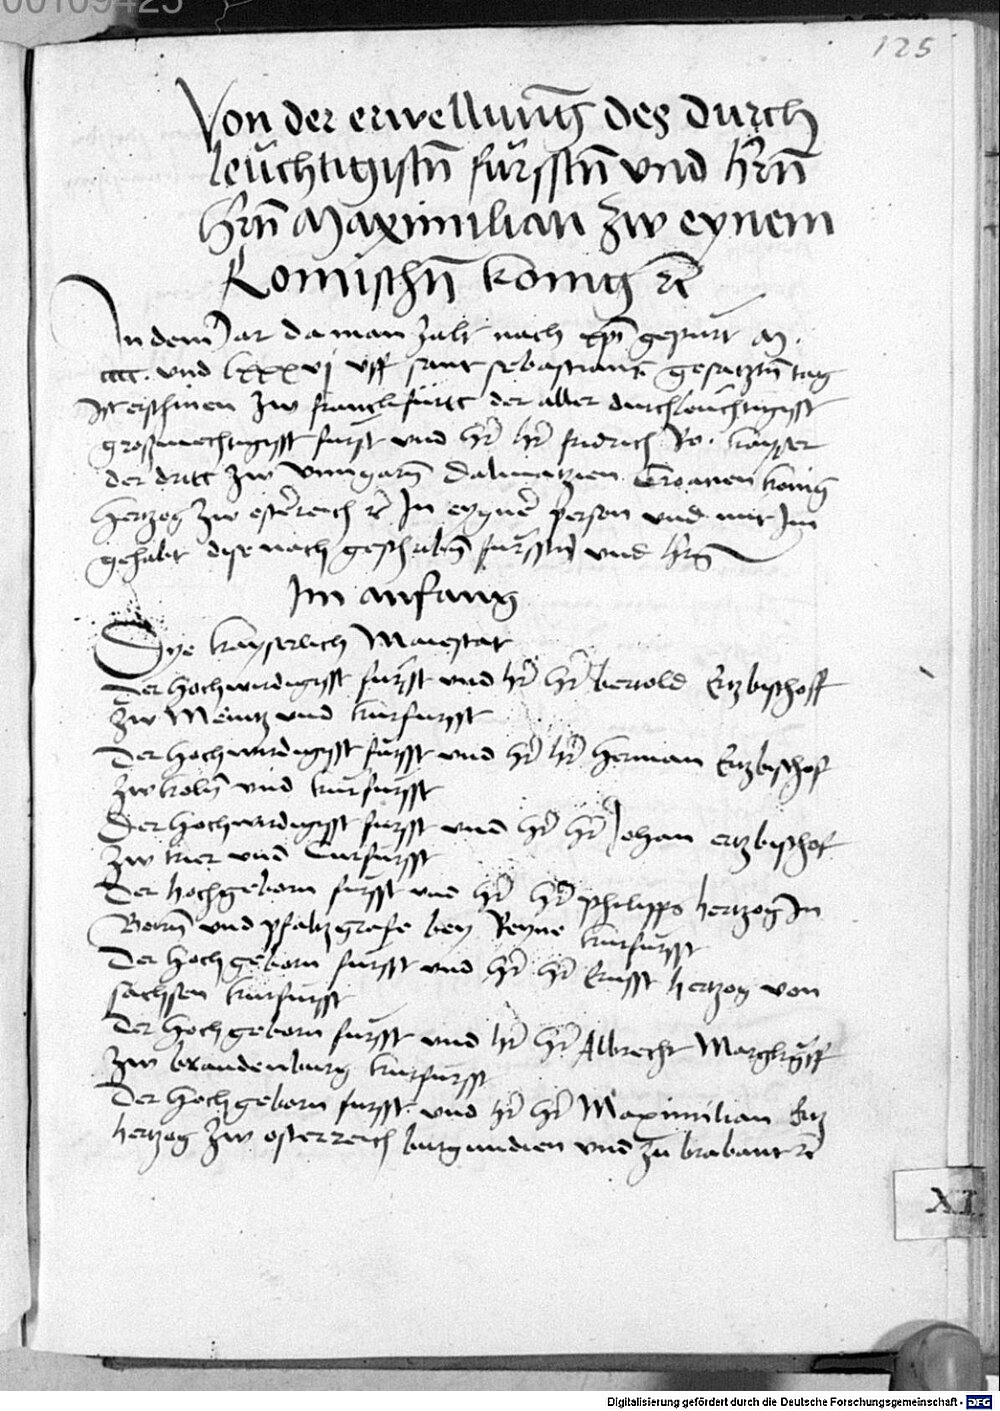 00109425
125
Von der erwellung des durch
leuchtigistn fursstn vnd hrn
hrn Maximilian zw eynem
Romischn konig rc
In dem Jar da man zalt nach xpi gepurt M.
cccc. vnd lxxxvj vff sant sebastians gesatztn tag
Ist erschinen zw franckfurtt der aller durchleuchtigist
großmechtigisst furst vnd hr hr fridrich Ro. kayser
der dritt zw vnngarn Dalmatzien Croatien konig
Hertzog zw osterreich rc In eygner person vnd mit Im
gehabt dise nach geschribn furstn vnd hrn
Im anfang
Dye kayserlich Maiestat
Der Hochwirdigisst fursst vnd hr hr bertold Ertzbischoff
zw Meintz vnd kurfursst
Der Hochwirdigisst fursst vnd hr hr Herman Ertzbischof
zw koln vnd kurfursst
Der Hochwirdigisst fursst vnd hr hr Johan ertzbischof
zw trier vnd Curfursst
Der hochgeborn fursst vnd hr hr philipps hertzog In
Beirn vnd pfaltzgrafe bey Reyne kurfursst
Der Hochgeborn fursst vnd hr hr Ernsst hertzog von
sachssen kurfursst
Der Hochgeborn fursst vnd hr hr Albrecht Marghgraff
zw brandenburg kurfursst
Der Hochgeborn fursst vnd hr hr Maximilian Ertz
hertzog zw osterreich burgundien vnd zu brabant rc
XI.
Digitalisierung gefördert durch die Deutsche Forschungsgemeinschaft - DFG